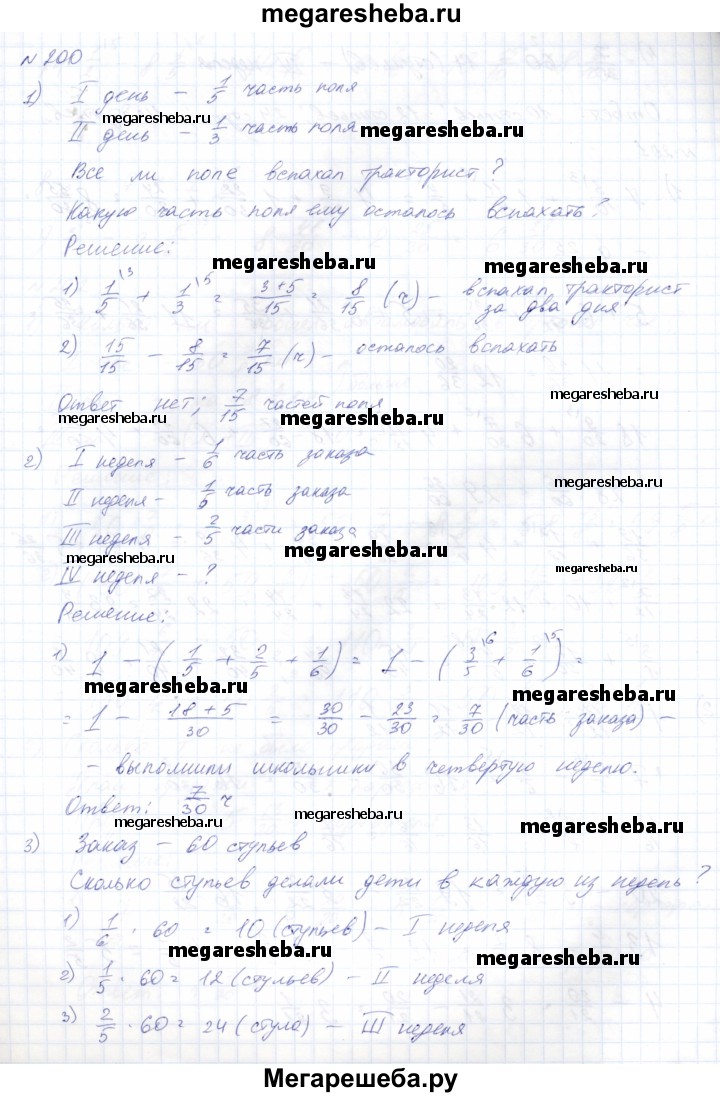 megaresheba.ru
№ 200
1) I день – 1/5 часть поля
megaresheba.ru
II день – 1/3 часть поля
megaresheba.ru
Все ли поле вспахал тракторист?
Какую часть поля ему осталось вспахать?
Решение:
megaresheba.ru
megaresheba.ru
1) 1/5 \3 + 1/3 \5 = 3+5/15 = 8/15 (ч) – вспахал тракторист
за два дня
2) 15/15 – 8/15 = 7/15 (ч) – осталось вспахать
megaresheba.ru
Ответ нет; 7/15 частей поля
megaresheba.ru
megaresheba.ru
2) I неделя – 1/6 часть заказа
megaresheba.ru
II неделя – 1/5 часть заказа
III неделя – 2/5 части заказа
megaresheba.ru
megaresheba.ru
megaresheba.ru
IV неделя – ?
Решение:
1) 1 – (1/5 + 2/5 + 1/6) = 1 – (3/5 \6 + 1/6 \5) =
megaresheba.ru
megaresheba.ru
= 1 – 18+5/30 = 30/30 – 23/30 = 7/30 (часть заказа) –
– выполнили школьники в четвертую неделю.
Ответ: 7/30 ч
megaresheba.ru
megaresheba.ru
megaresheba.ru
3) Заказ – 60 стульев
Сколько стульев делали дети в каждую из недель?
1) 1/6 · 60 = 10 (стульев) – I неделя
megaresheba.ru
megaresheba.ru
2) 1/5 · 60 = 12 (стульев) – II неделя
3) 2/5 · 60 = 24 (стула) – III неделя
megaresheba.ru
Мегарешеба.ру